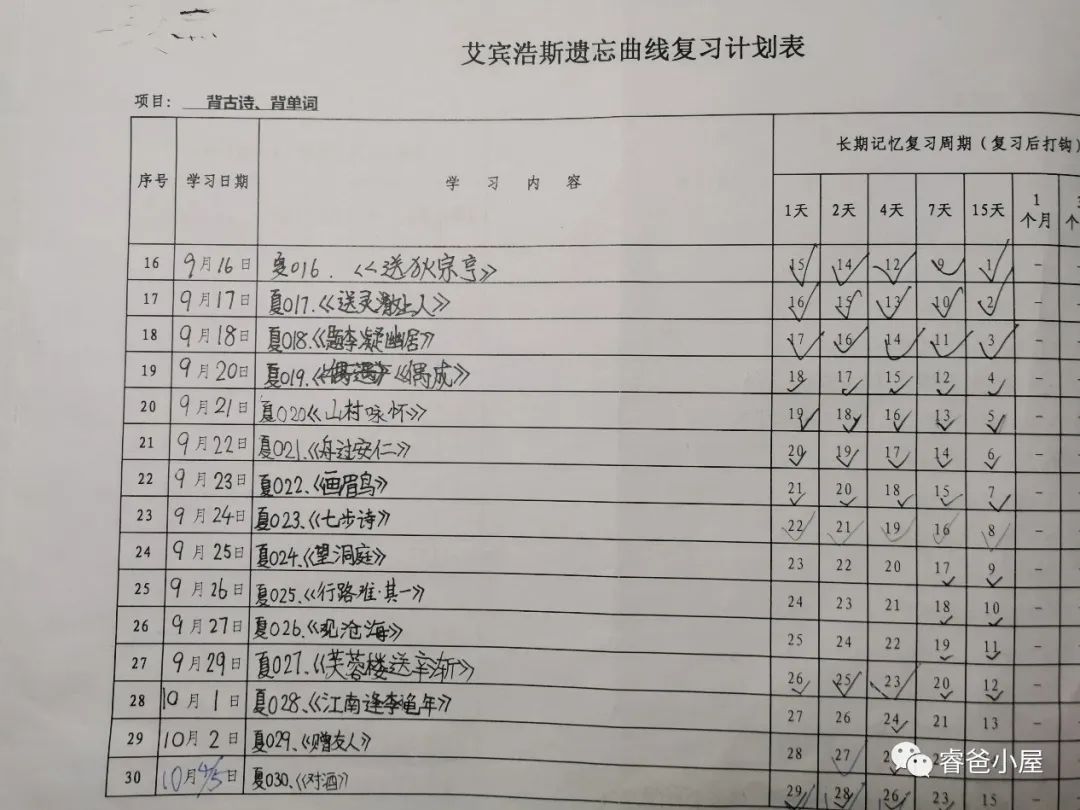 艾宾浩斯遗忘曲线复习计划表
项目: 背古诗、背单词
序号 学习日期 学 习 内 容 长期记忆复习周期(复习后打钩)
1天 2天 4天 7天 15天 1个月
16 9月16日 夏016.《送狄宗亨》 15 14 12 9 1 -
17 9月17日 夏017.《送灵澈上人》 16 15 13 10 2 -
18 9月18日 夏018.《题李凝幽居》 17 16 14 11 3 -
19 9月20日 夏019.《偶成》 18 17 15 12 4 -
20 9月21日 夏020《山村咏怀》 19 18 16 13 5 -
21 9月22日 夏021.《舟过安仁》 20 19 17 14 6 -
22 9月23日 夏022.《画眉鸟》 21 20 18 15 7 -
23 9月24日 夏023.《七步诗》 22 21 19 16 8 -
24 9月25日 夏024.《望洞庭》 23 22 20 17 9 -
25 9月26日 夏025.《行路难·其一》 24 23 21 18 10 -
26 9月27日 夏026.《观沧海》 25 24 22 19 11 -
27 9月29日 夏027.《芙蓉楼送辛渐》 26 25 23 20 12 -
28 10月1日 夏028.《江南逢李龟年》 27 26 24 21 13 -
29 10月2日 夏029.《赠友人》 28 27
30 10月4/5日 夏030.《对酒》 29 28 26 23 15 -
睿爸小屋